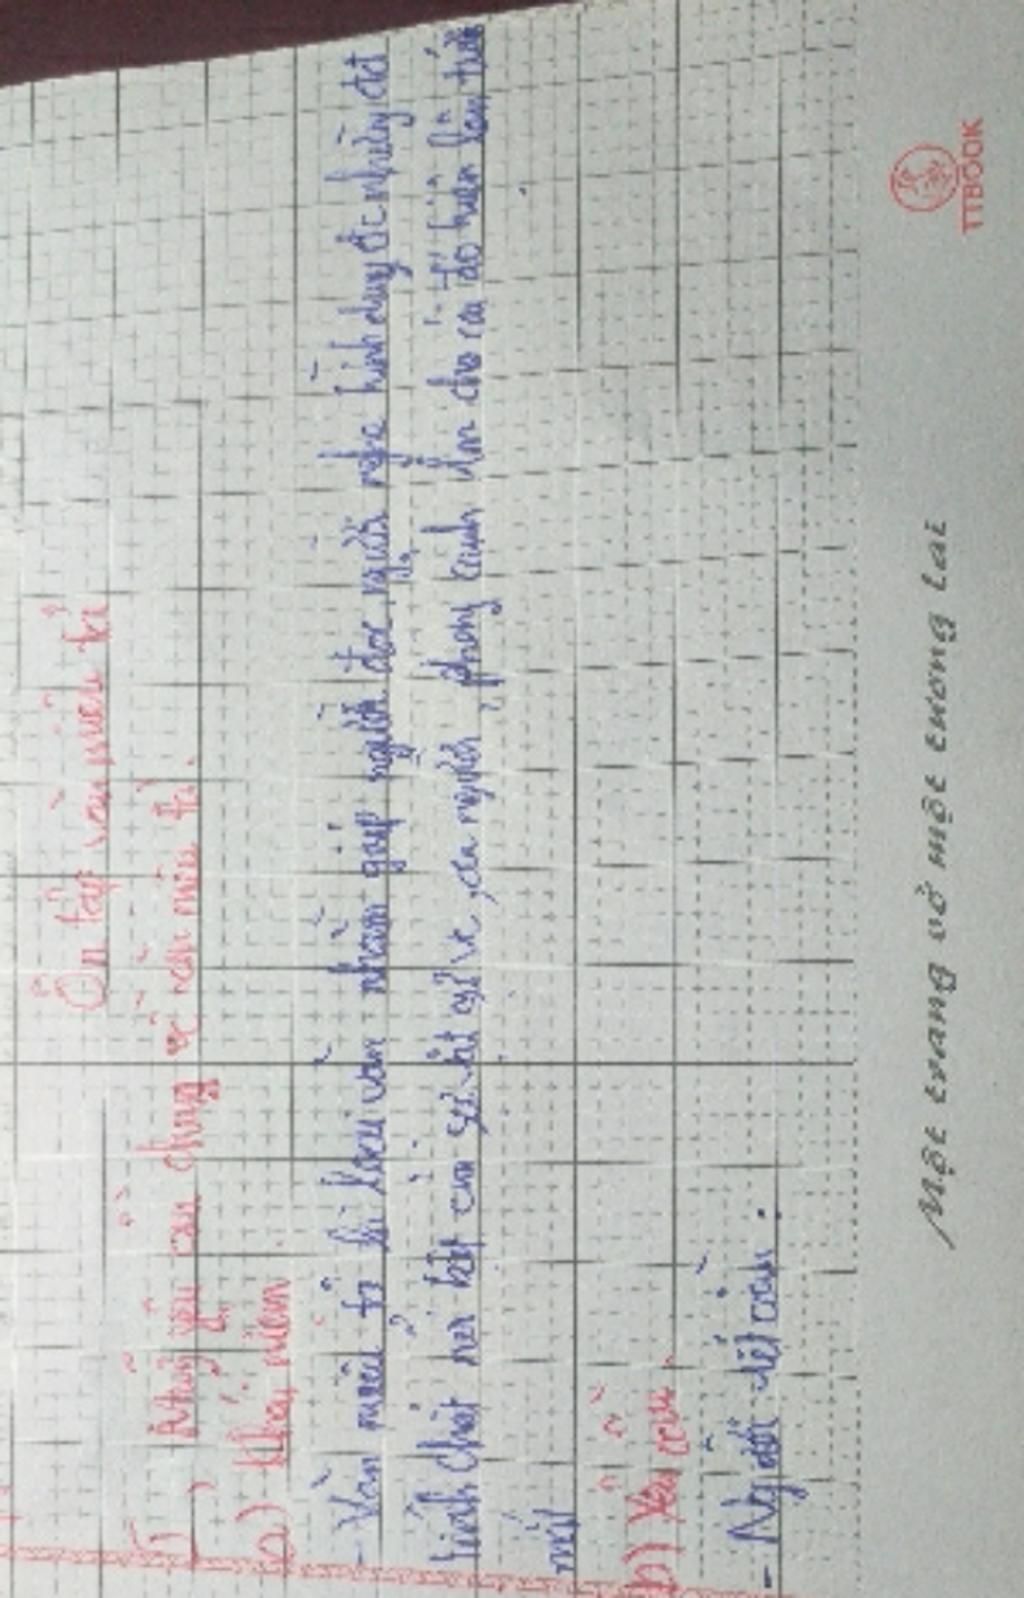 Ôn tập văn miêu tả
1) Những yêu cầu chung về văn miêu tả.
a) Khái niệm
- Văn miêu tả là loại văn nhằm giúp người đọc, người nghe hình dung đc những đđ
tính chất nổi bật của sự vật, sự vc, của người, phong cảnh làm cho cái đó hiện lên trước
mắt
b) Yêu cầu.
- Ng đối tết
Một trang vở một tương lai
TTBOOK